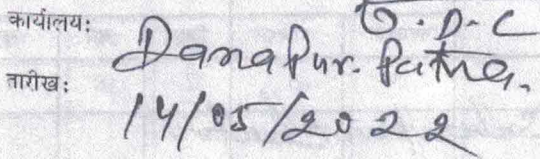 कार्यालय: U.D.C
Danapur. Patna.
तारीख: 14/05/2022